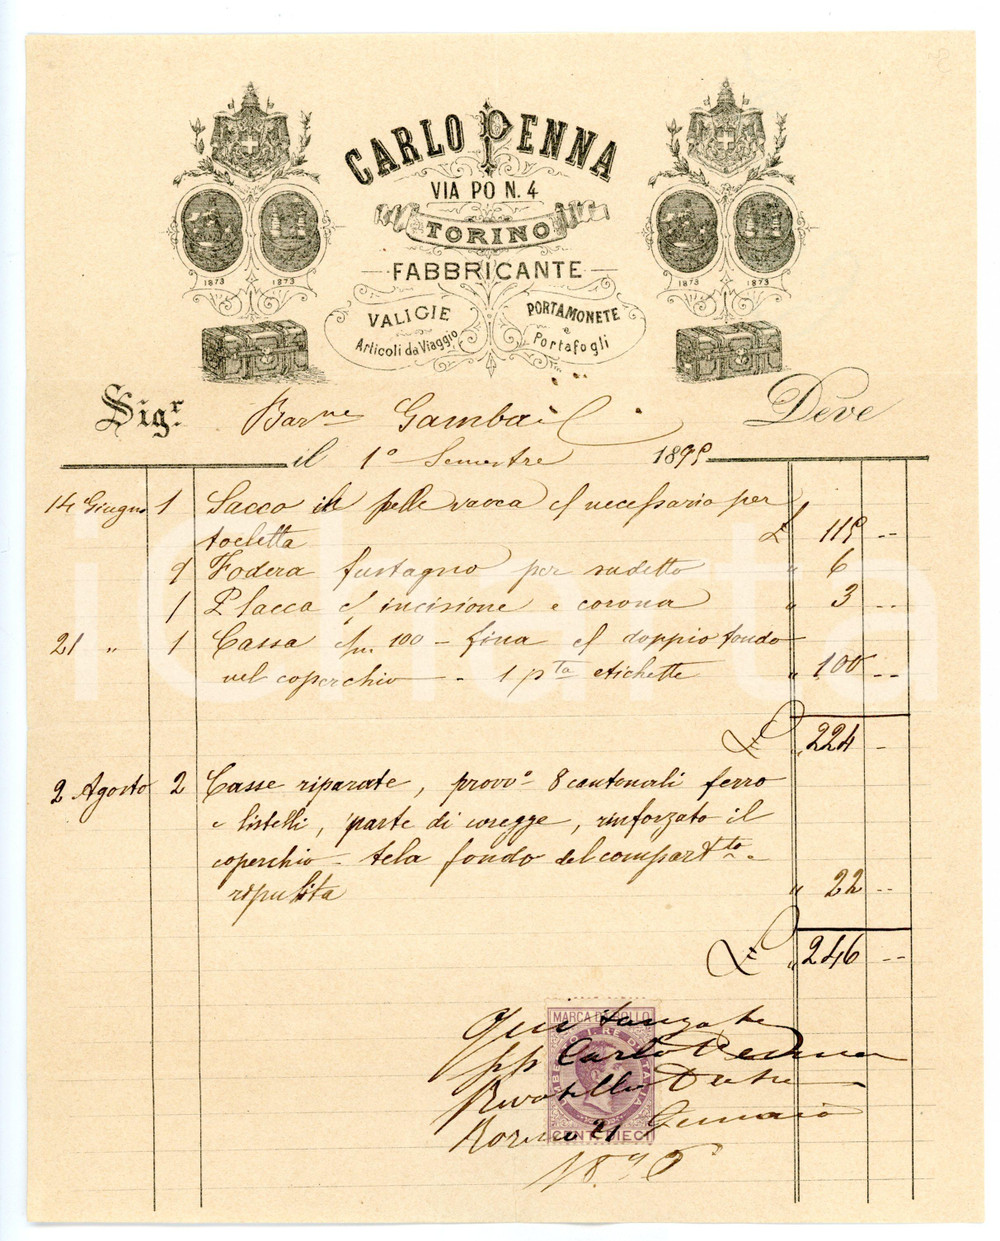 CARLO PENNA
VIA PO N. 4
TORINO
FABBRICANTE
VALIGIE
Articoli da Viaggio
PORTAMONETE
e
Portafogli
1873 1873
1873 1873
Sig.r Bar.ne Gamba Deve
il 1° Semestre 1895
14 Giugno 1 Sacco in pelle vacca c/ necessario per
toeletta £ 115 --
1 Fodera fustagno per sudetto " 6
1 Placca c/ incisione e corona " 3 --
21 " 1 Cassa 100 - fina c/ doppio fondo
nel coperchio - 1 pta etichette " 100 --
£ " 224 -
2 Agosto 2 Casse riparate, provo 8 cantonali ferro
e listelli, parte di coregge, rinforzato il
coperchio - tela fondo del compartto
ripulita " 22 --
£ " 246 --
MARCA DA BOLLO
UMBERTO I. RE D'ITALIA
CENT. DIECI
Quitanzata
pp Carlo Penna
Torino 21 Gennaio
1896
iCharta